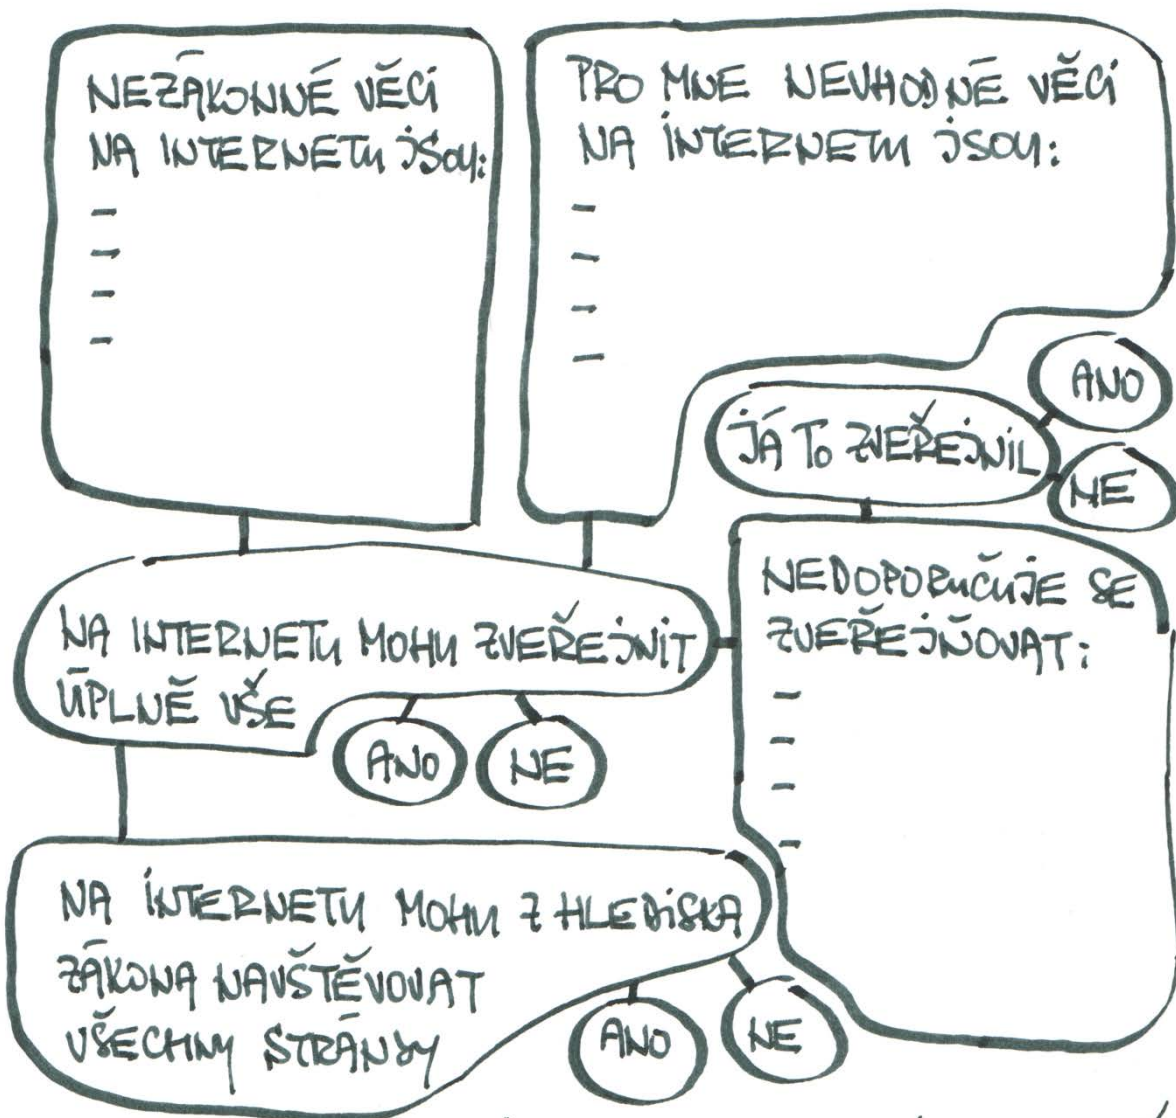 NEZÁKONNÉ VĚCI
NA INTERNETU JSOU:
-
-
-
-
PRO MNE NEVHODNÉ VĚCI
NA INTERNETU JSOU:
-
-
-
-
JÁ TO ZVEŘEJNIL
ANO
NE
NA INTERNETU MOHU ZVEŘEJNIT
ÚPLNĚ VŠE
ANO
NE
NEDOPORUČUJE SE
ZVEŘEJŇOVAT:
-
-
-
-
NA INTERNETU MOHU Z HLEDISKA
ZÁKONA NAVŠTĚVOVAT
VŠECHNY STRÁNKY
ANO
NE